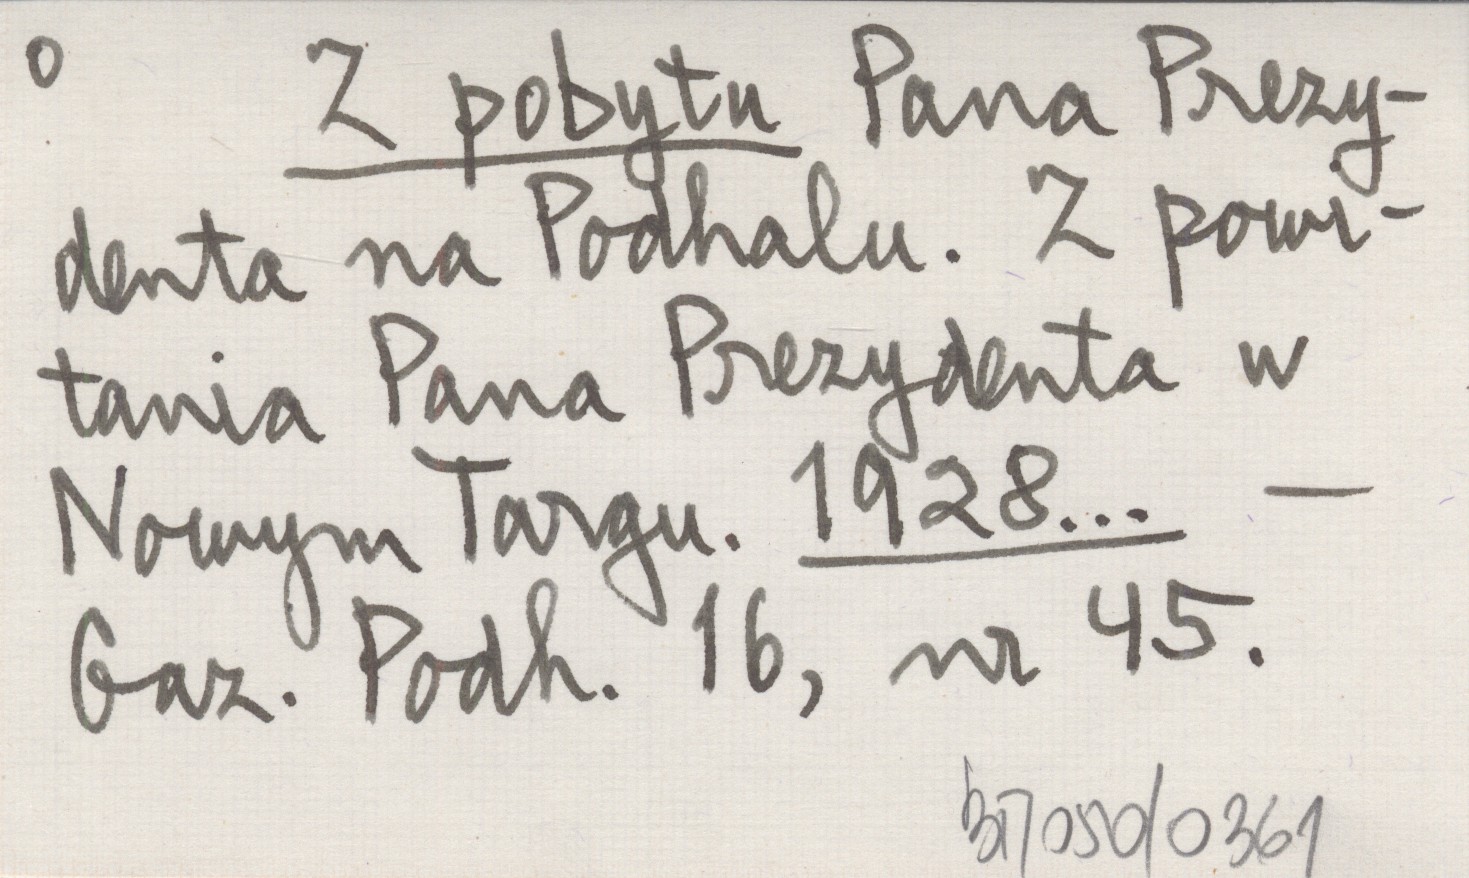 o Z pobytu Pana Prezy-
denta na Podhalu. Z powi-
tania Pana Prezydenta w
Nowym Targu. 1928... —
Gaz. Podh. 16, nr 45.
/0361